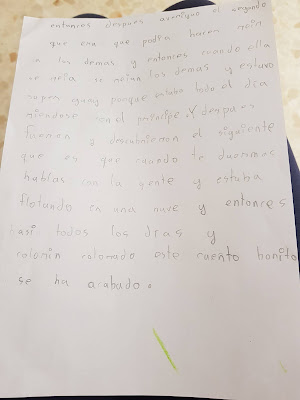 entonces despues averiguo el segundo
que era que podia hacer reir
a los demas y entonces cuando ella
se reia se reian los demas y estuvo
super guay porque estaba todo el dia
riendose con el principe. Y despues
fueron a descubrieron el siguiente
que es que cuando te duermes
hablas con la gente y estaba
flotando en una nuve y entonces
hasi todos los dias y
colorin colorado este cuento bonito
se ha acabado.